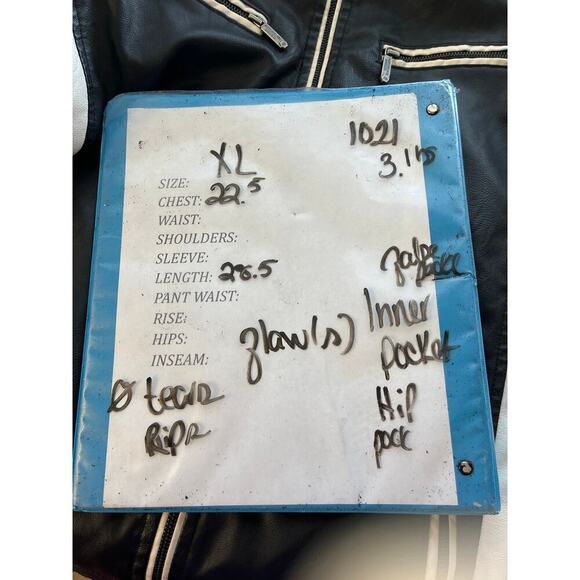 XL
1021
3.1 lbs
SIZE:
CHEST: 22.5
WAIST:
SHOULDERS:
SLEEVE:
LENGTH: 28.5
PANT WAIST:
RISE:
HIPS:
INSEAM:
flaw(s)
Inner
pocket
Hip
pock
Ø tears
Rips